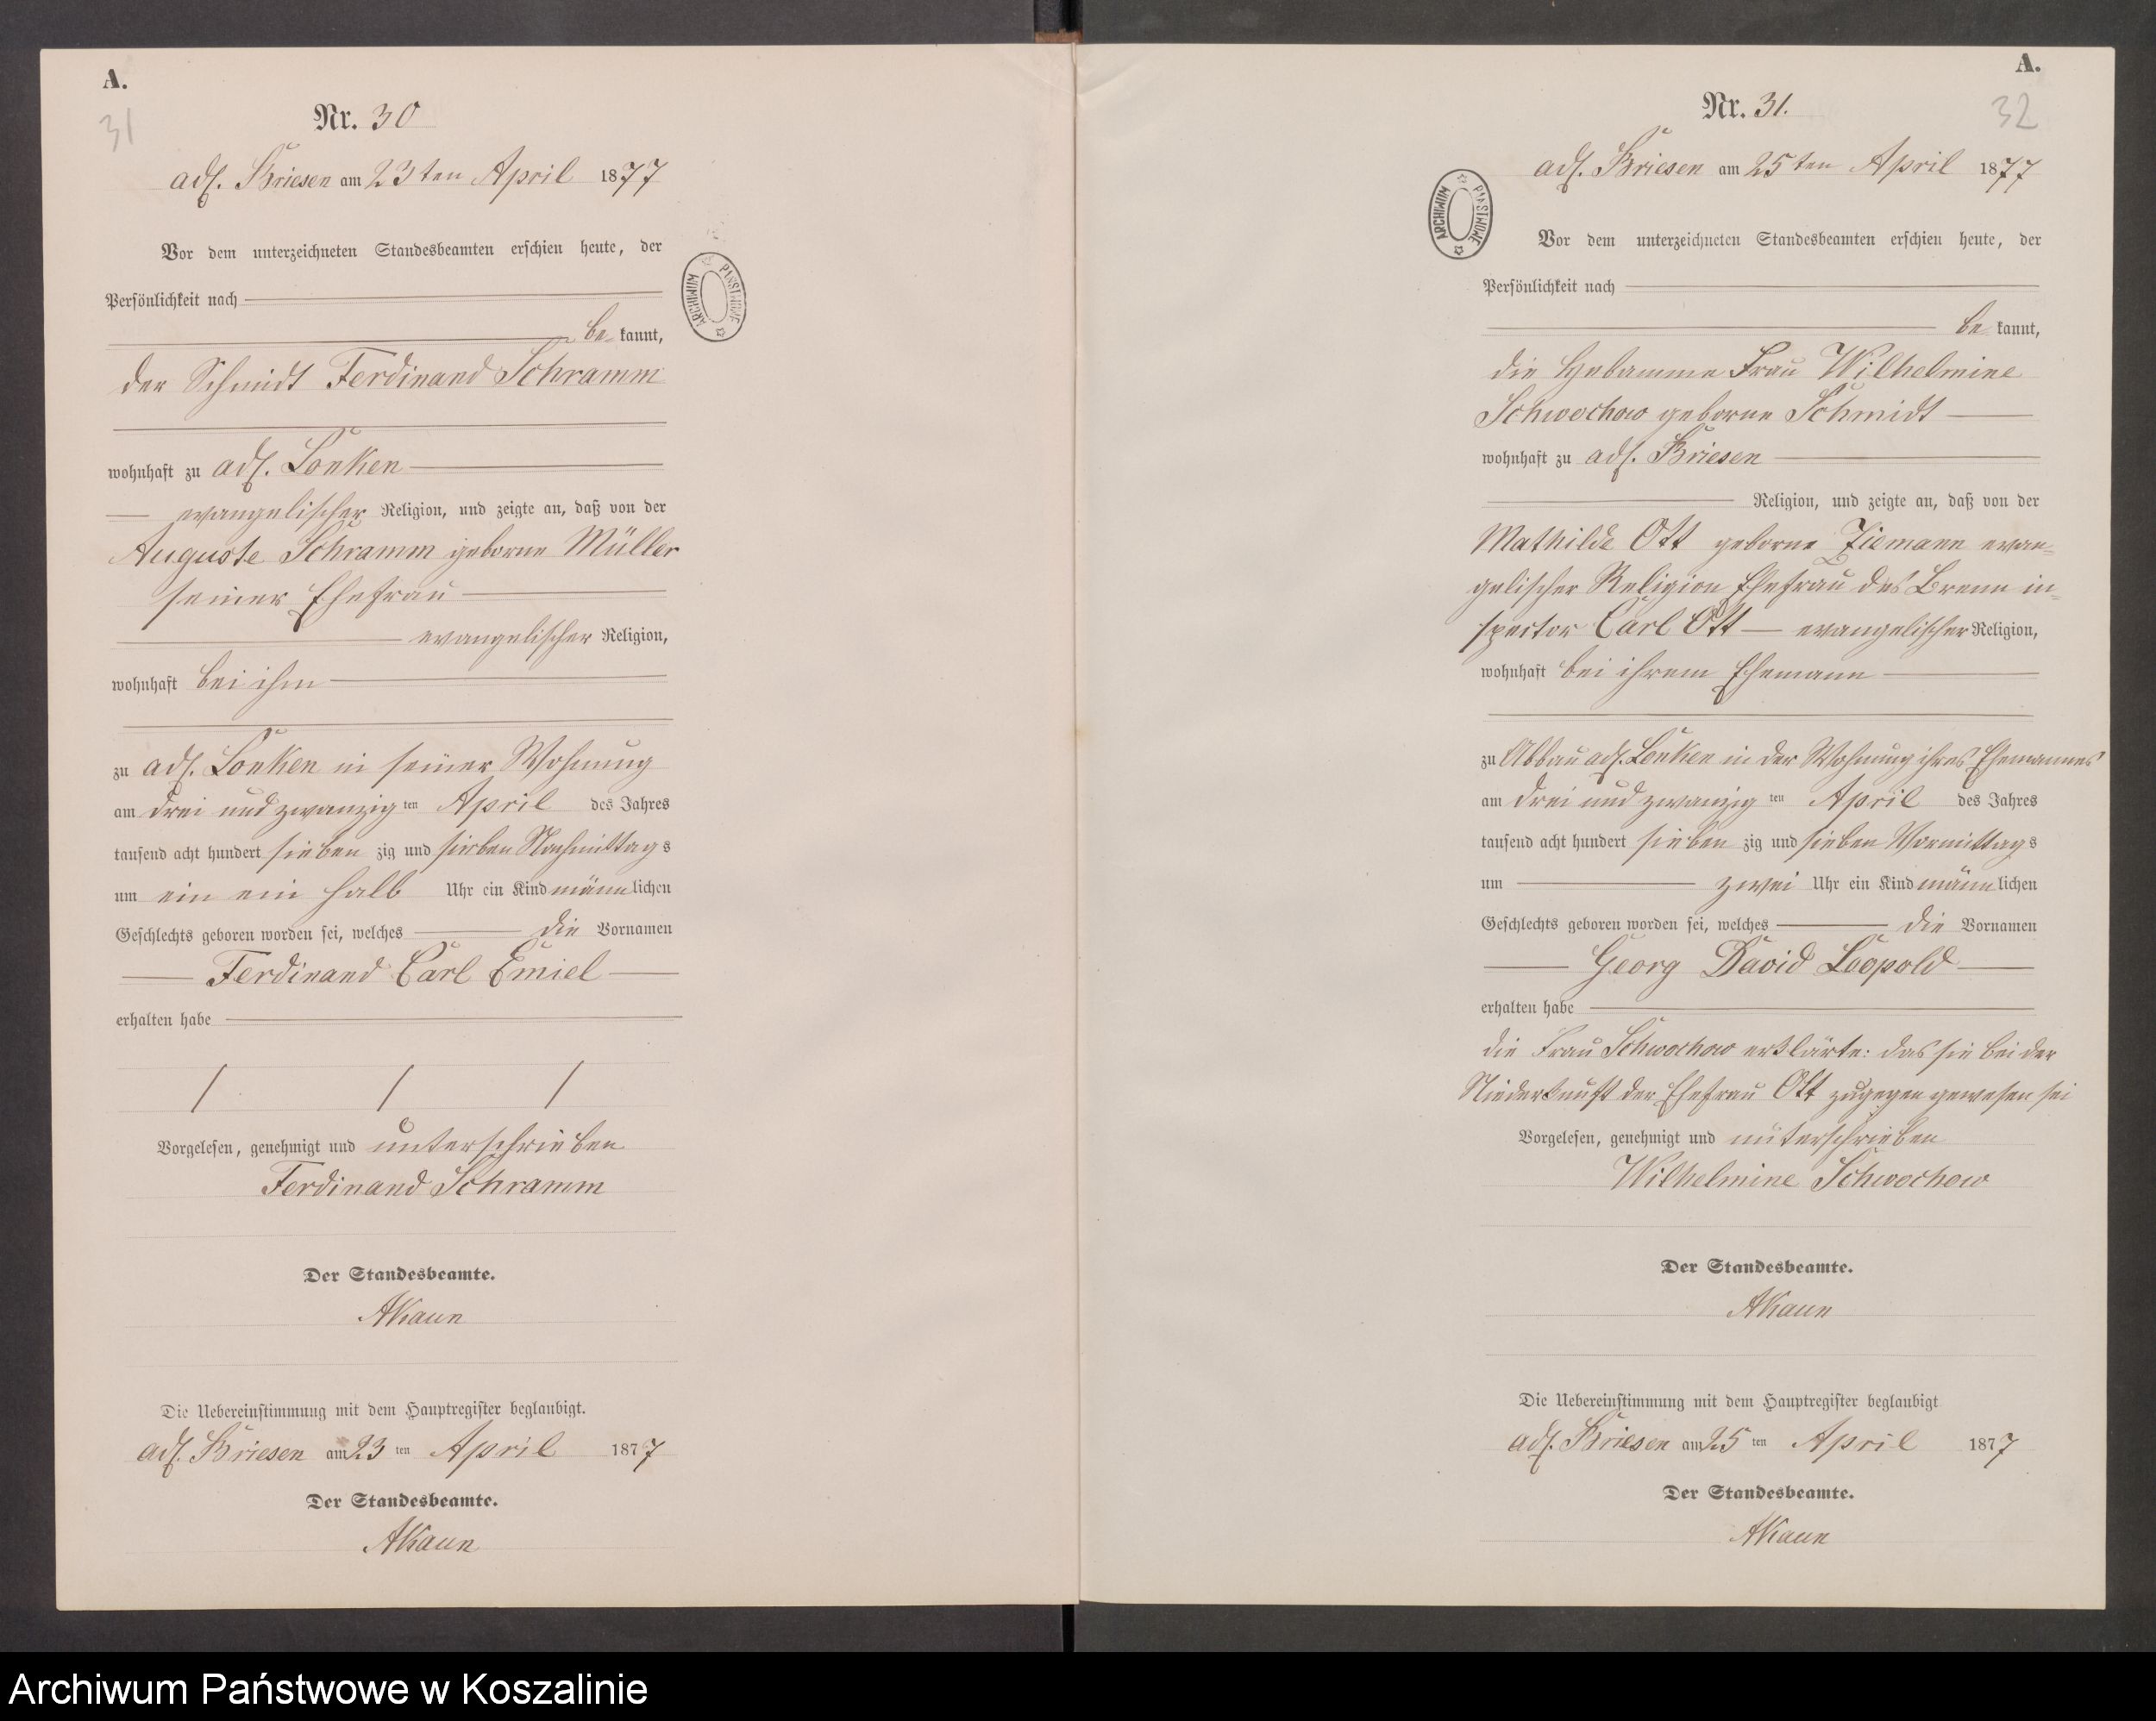 A.
31
Nr. 30
adl. Briesen am 23ten April 1877
Vor dem unterzeichneten Standesbeamten erschien heute, der
Persönlichkeit nach
be kannt,
der Schmidt Ferdinand Schramm
wohnhaft zu adl. Lonken
evangelischer Religion, und zeigte an, daß von der
Auguste Schramm geborne Müller
seiner Ehefrau
evangelischer Religion,
wohnhaft bei ihm
zu adl. Lonken in seiner Wohnung
am drei und zwanzig ten April des Jahres
tausend acht hundert sieben zig und sieben Nachmittags
um ein ein halb Uhr ein Kind männlichen
Geschlechts geboren worden sei, welches die Vornamen
Ferdinand Carl Emiel
erhalten habe
/ / /
Vorgelesen, genehmigt und unterschrieben
Ferdinand Schramm
Der Standesbeamte.
AKaun
Die Uebereinstimmung mit dem Hauptregister beglaubigt.
adl. Briesen am 23 ten April 1877
Der Standesbeamte.
AKaun
ARCHIWUM PAŃSTWOWE
A.
32
Nr. 31.
adl. Briesen am 25ten April 1877
ARCHIWUM PAŃSTWOWE
Vor dem unterzeichneten Standesbeamten erschien heute, der
Persönlichkeit nach
be kannt,
die Hebamme Frau Wilhelmine
Schwochow geborne Schmidt
wohnhaft zu adl. Briesen
Religion, und zeigte an, daß von der
Mathilde Ott geborne Ziemann evan=
gelischer Religion Ehefrau des Brenn in=
spector Carl Ott — evangelischer Religion,
wohnhaft bei ihrem Ehemann
zu Abbau adl. Lonken in der Wohnung ihres Ehemannes
am drei und zwanzig ten April des Jahres
tausend acht hundert sieben zig und sieben Vormittags
um zwei Uhr ein Kind männlichen
Geschlechts geboren worden sei, welches die Vornamen
Georg David Leopold
erhalten habe
die Frau Schwochow erklärte: das sie bei der
Niederkunft der Ehefrau Ott zugegen gewesen sei
Vorgelesen, genehmigt und unterschrieben
Wilhelmine Schwochow
Der Standesbeamte.
AKaun
Die Uebereinstimmung mit dem Hauptregister beglaubigt
adl. Briesen am 25 ten April 1877
Der Standesbeamte.
AKaun
Archiwum Państwowe w Koszalinie